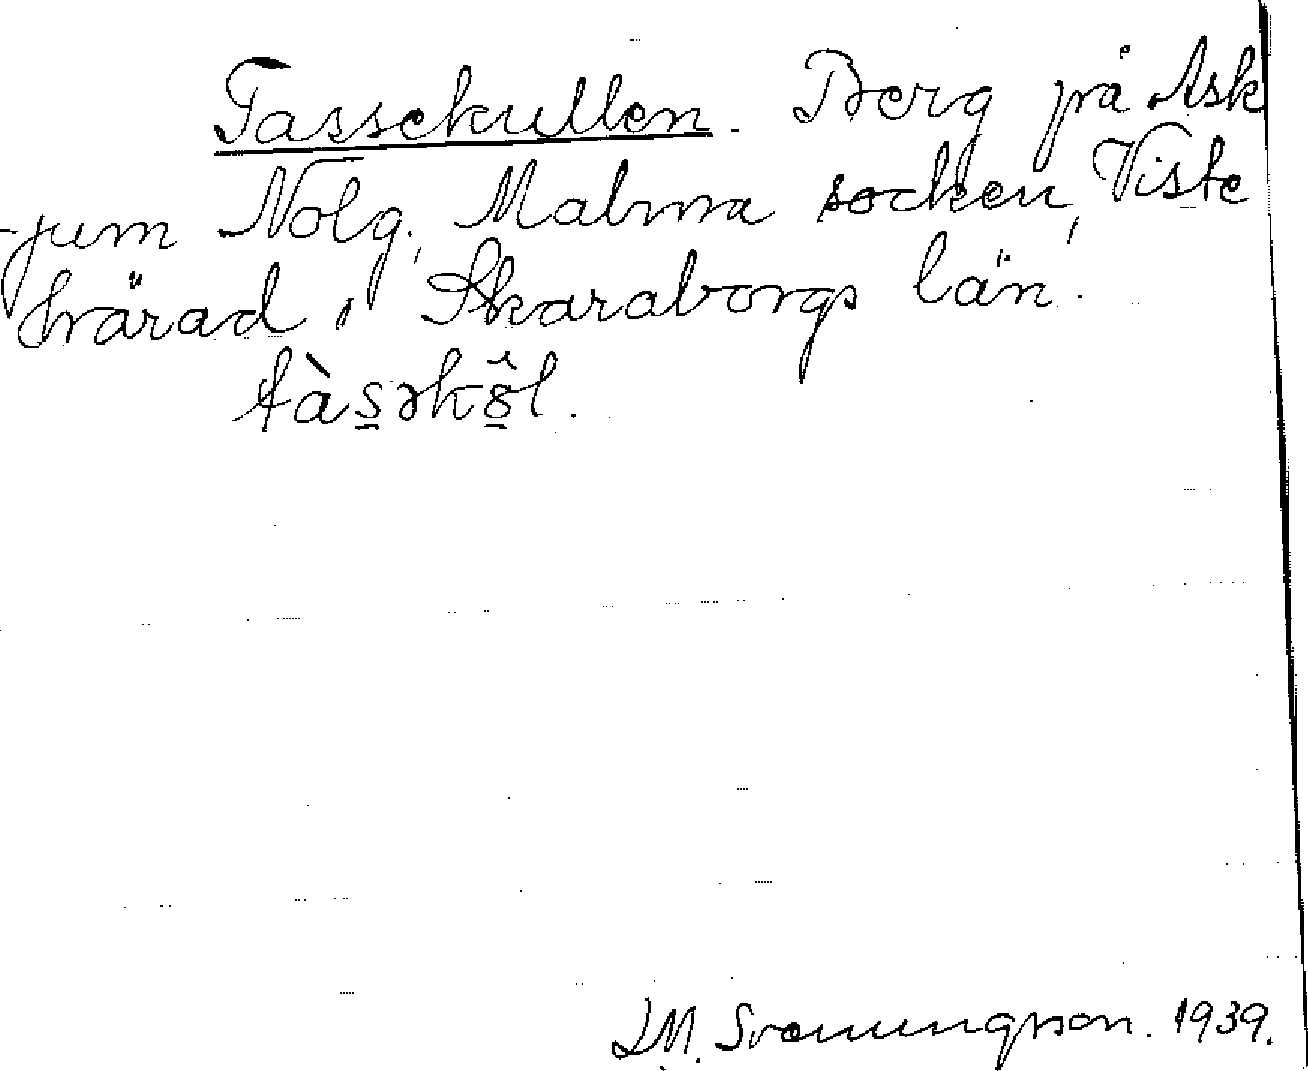 Tassekullen. Berg på Ask
-jum Nolg., Malma socken, Viste
härad, Skaraborgs län.
tàs̱əkô̱l.
I.M. Svenungsson. 1939.